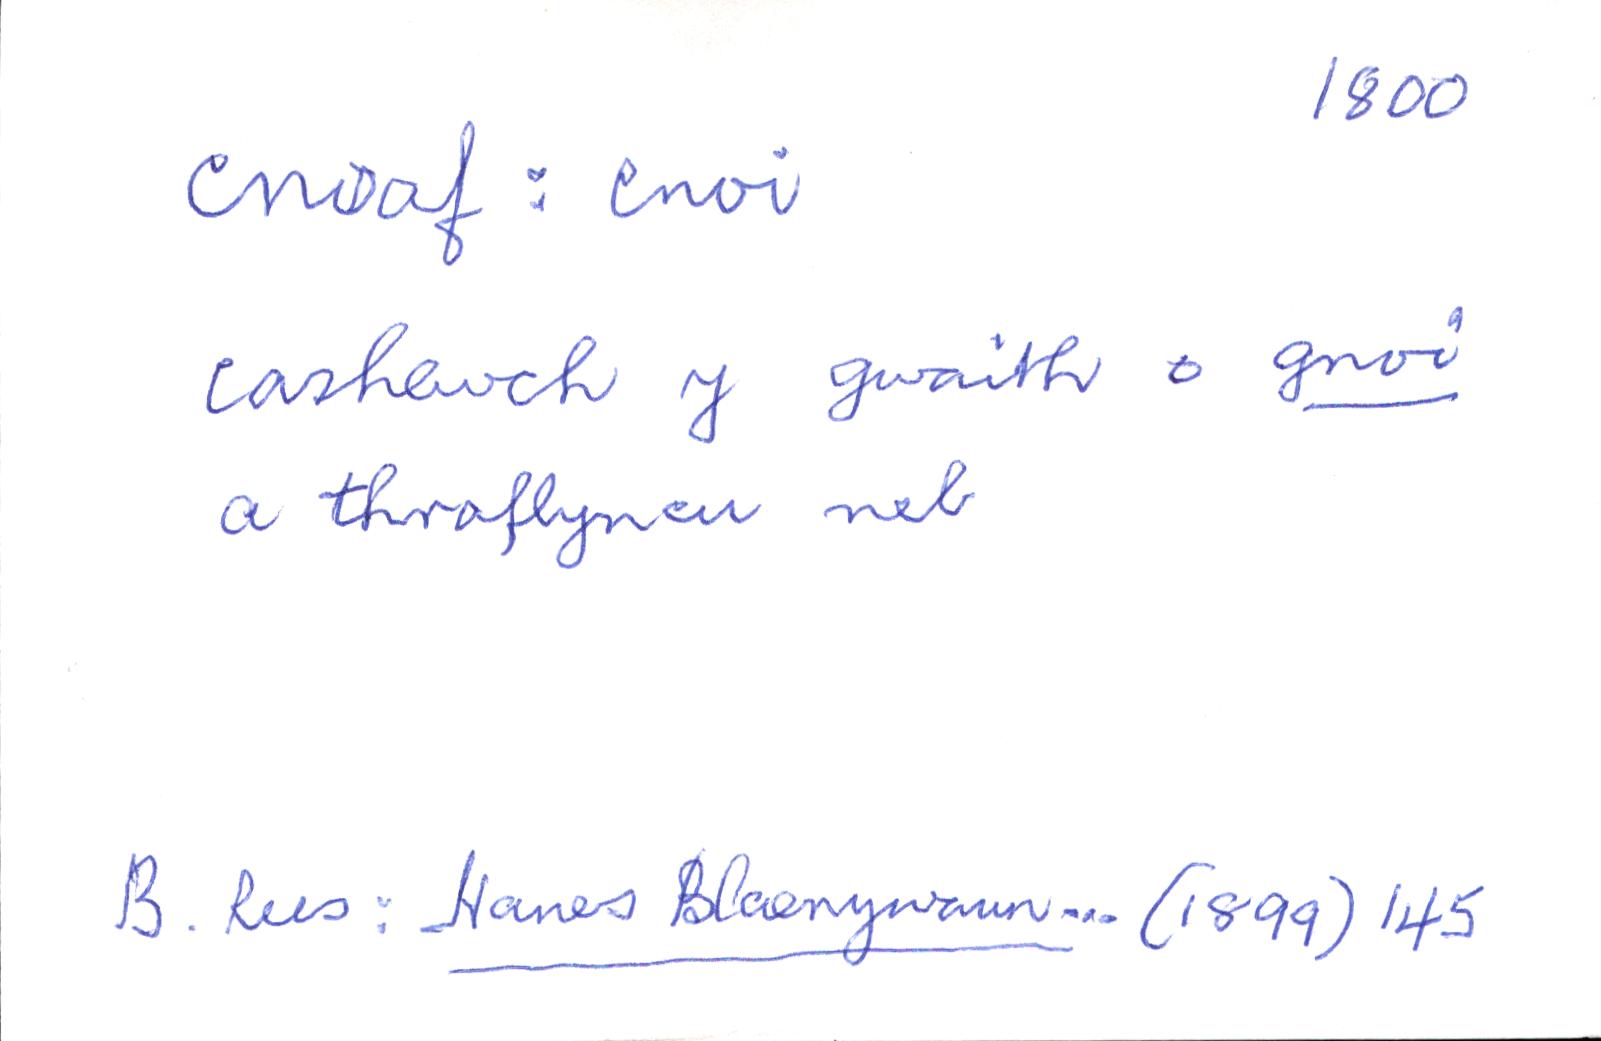 1800
cnoaf : cnoi
cashewch y gwaith o gnoi
a thraflyncu neb
B. Rees : Hanes Blaenywaun... (1899) 145